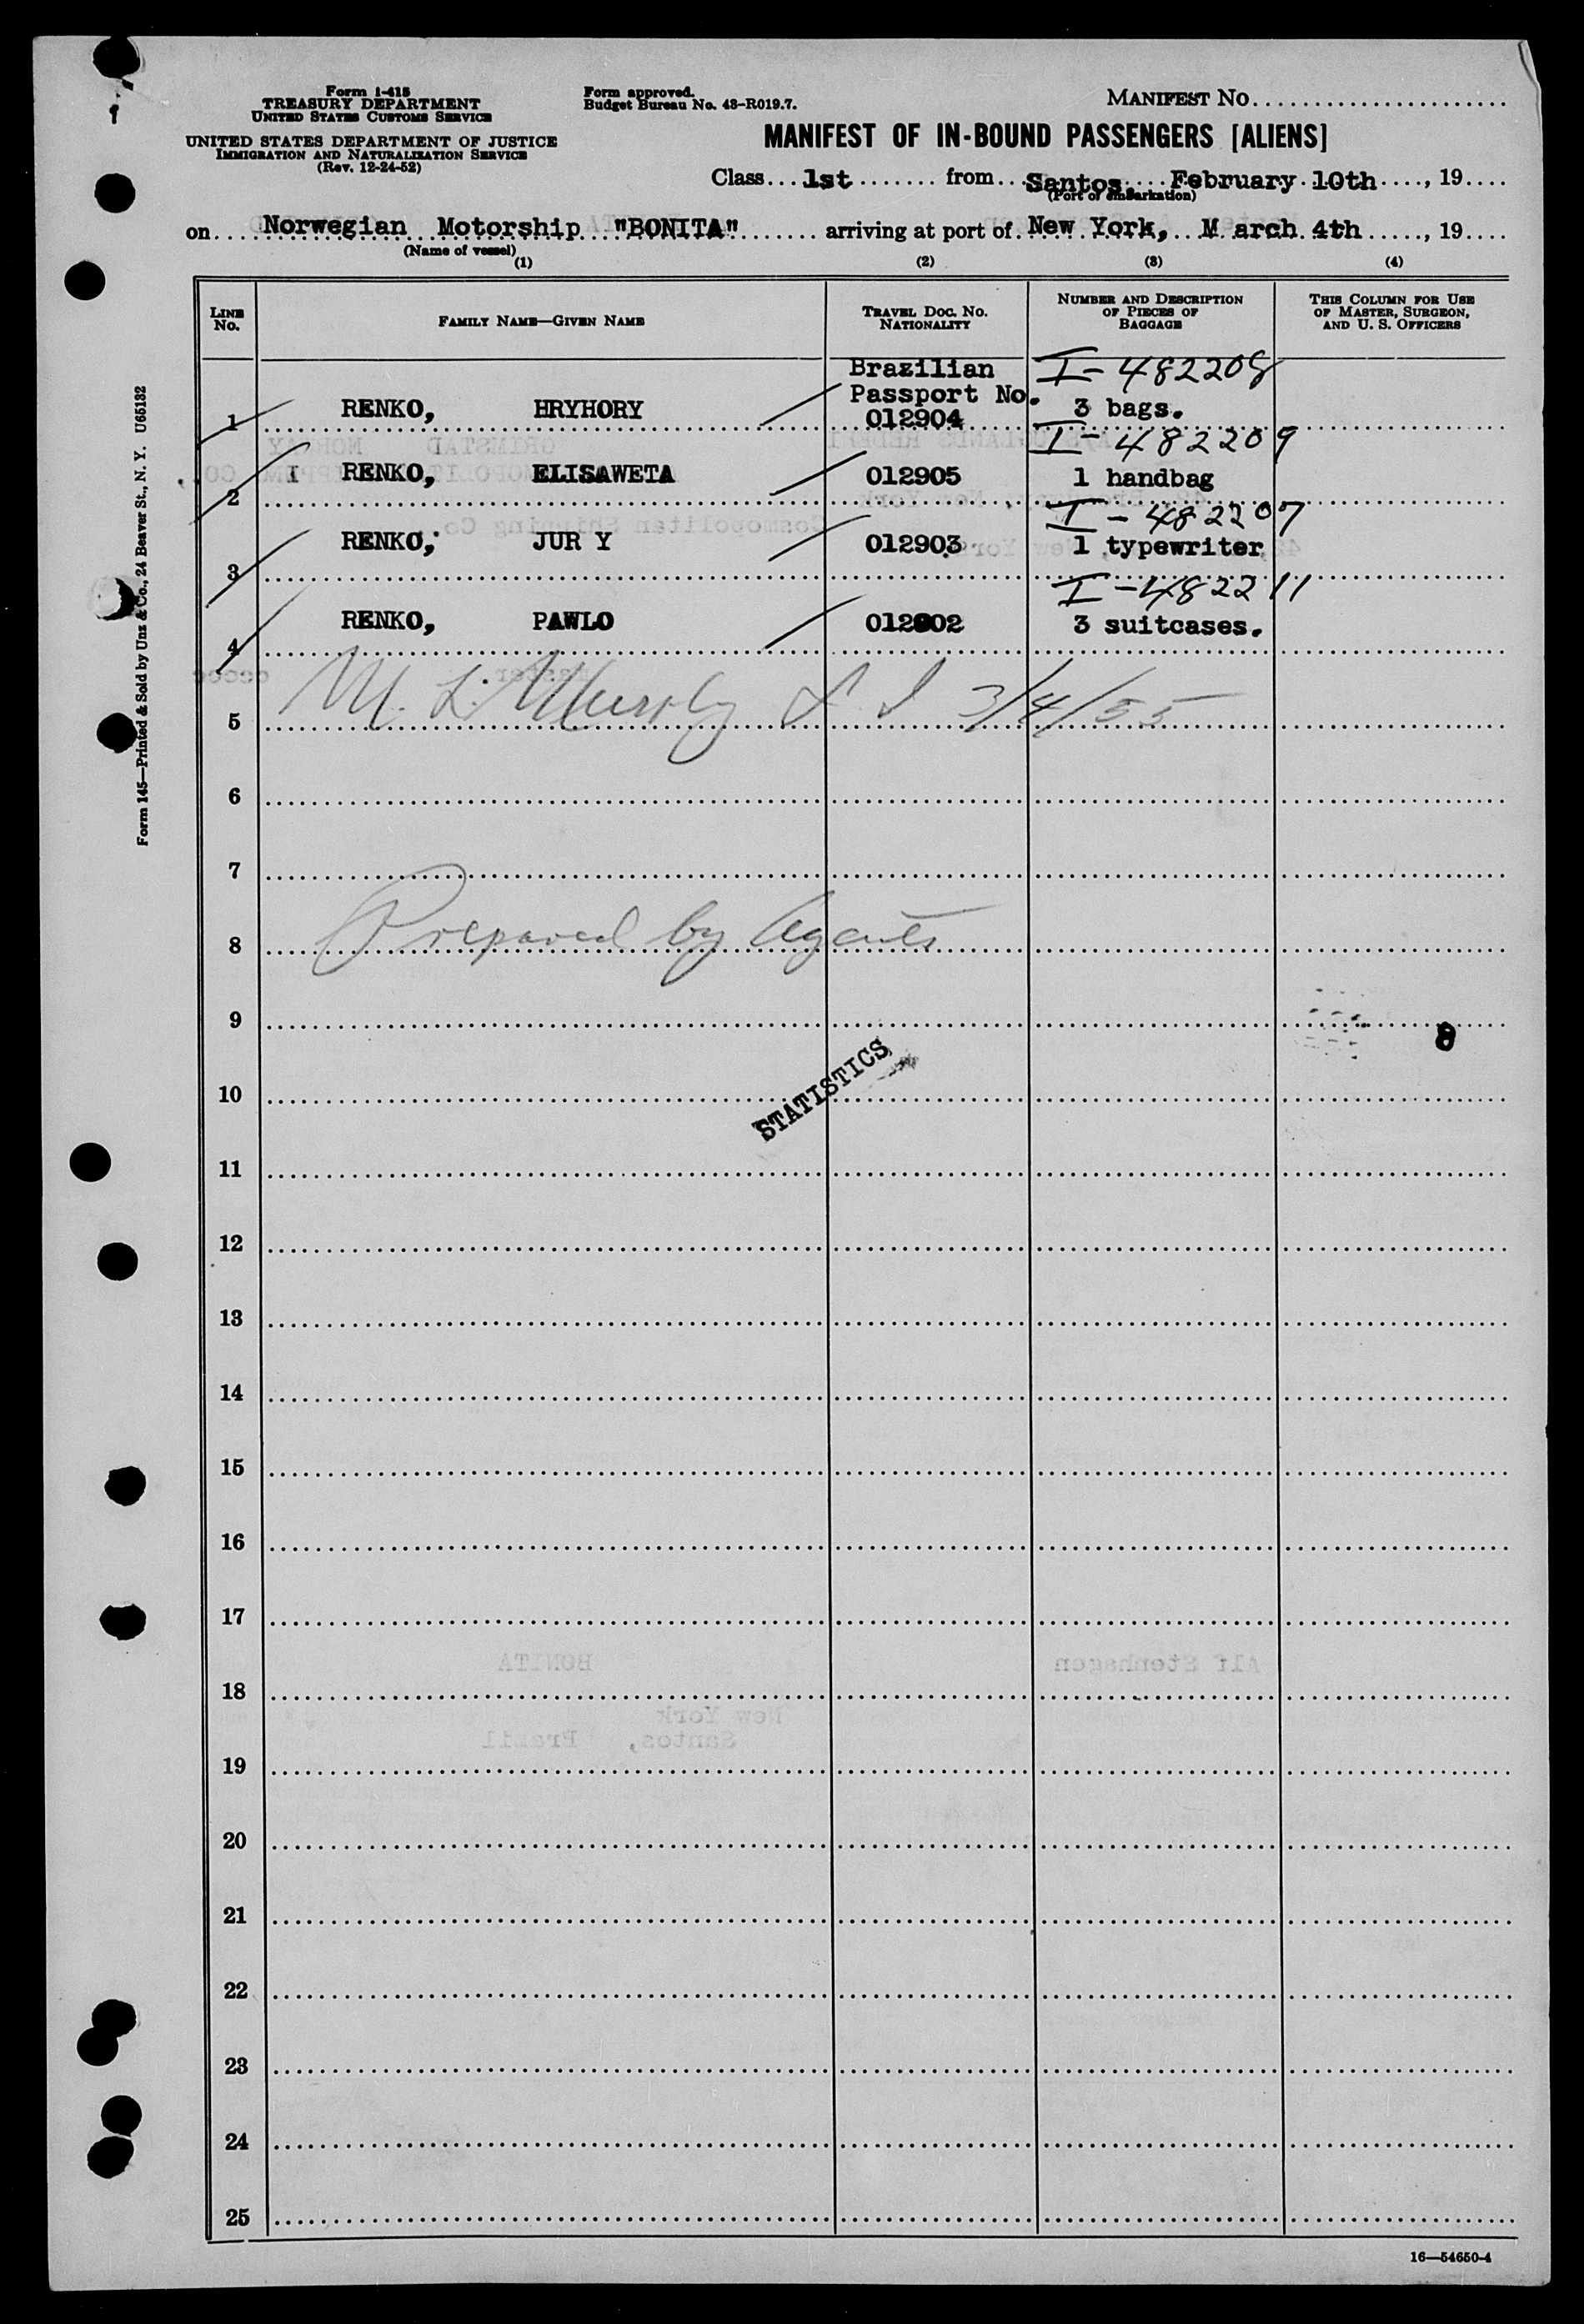 Form I-415
TREASURY DEPARTMENT
UNITED STATES CUSTOMS SERVICE
UNITED STATES DEPARTMENT OF JUSTICE
IMMIGRATION AND NATURALIZATION SERVICE
(Rev. 12-24-52)
Form approved.
Budget Bureau No. 43-R019.7.
MANIFEST No.
MANIFEST OF IN-BOUND PASSENGERS [ALIENS]
Class 1st from Santos, February 10th, 19
(Port of embarkation)
on Norwegian Motorship "BONITA" arriving at port of New York, M arch 4th, 19
(Name of vessel)
(1) (2) (3) (4)
LINE No. FAMILY NAME—GIVEN NAME TRAVEL DOC. NO. NATIONALITY NUMBER AND DESCRIPTION OF PIECES OF BAGGAGE THIS COLUMN FOR USE OF MASTER, SURGEON, AND U. S. OFFICERS
Brazilian I-482208
Passport No.
1 RENKO, HRYHORY 012904 3 bags.
I-482209
2 I RENKO, ELISAWETA 012905 1 handbag
I-482207
3 RENKO, JUR Y 012903 1 typewriter
I-482211
4 RENKO, PAWLO 012902 3 suitcases.
5 M. L. Murphy I I 3/4/55
6
7
8 Prepared by Agents
9
8
STATISTICS
10
11
12
13
14
15
16
17
18
19
20
21
22
23
24
25
16—54650-4
Form 145—Printed & Sold by Unz & Co., 24 Beaver St., N. Y. U65132